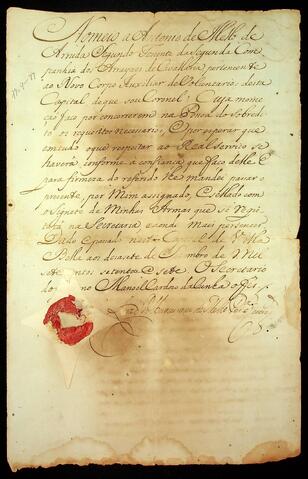 Nomeio a Antonio de Mello de
Arruda Segundo Tenente da Segunda Com
panhia dos Arrayaes de pertencente
ao Novo Corpo Auxiliar de Voluntarios desta
Capital de que sou Coronel: Cuja nome
ação faço por concorrerem na Pessoa do sobredi
to os requesitos necessarios, e por esperar que
em tudo o que respeitar ao Real serviço se
haverá conforme a confiança que faço delle. E
para firmeza do referido lhe mandei passar o
prezente por Mim assignado, e Sellado com
o Signete de Minhas Armas que se regis
tará na Secretaria e aonde mais pertencer.
Dado e passado nesta Capital de Villa
Bella aos dezasete de Setembro de Mil
sete centos setenta e sete. O Secretario
Manoel Cardoso da Cunha o fes
de Mello Per.ª